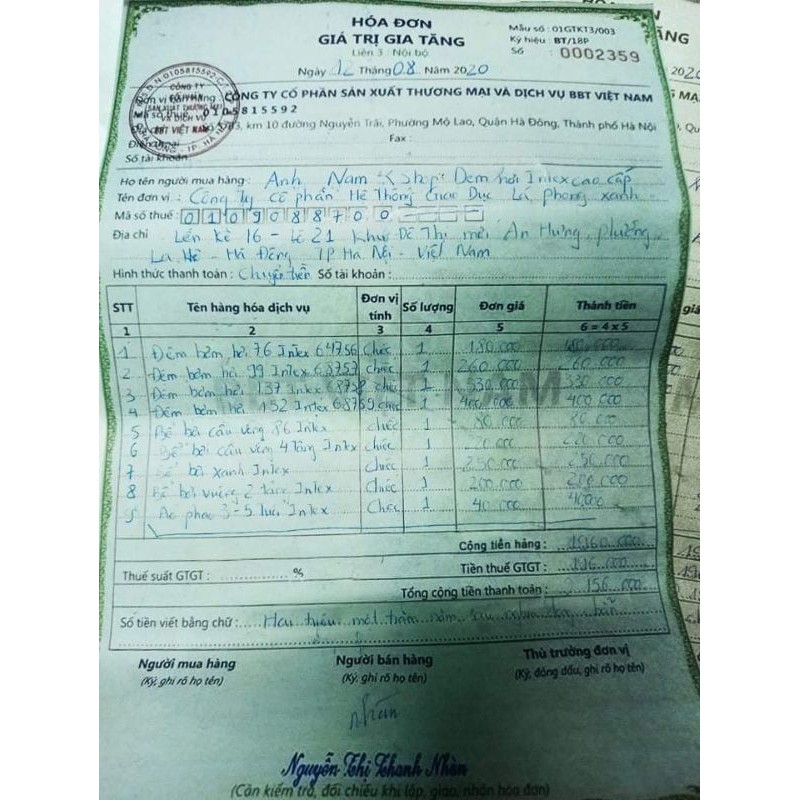 HÓA ĐƠN
GIÁ TRỊ GIA TĂNG
Liên 3 : Nội bộ
Ngày 12 Tháng 08 Năm 2020
Mẫu số : 01GTKT3/003
Ký hiệu : BT/18P
Số : 0002359
Đơn vị bán hàng : CÔNG TY CỔ PHẦN SẢN XUẤT THƯƠNG MẠI VÀ DỊCH VỤ BBT VIỆT NAM
Mã số thuế : 0105815592
km 10 đường Nguyễn Trãi, Phường Mộ Lao, Quận Hà Đông, Thành phố Hà Nội
Điện thoại Fax :
Số tài khoản
Họ tên người mua hàng : Anh Nam Shop Đệm hơi Intex cao cấp
Tên đơn vị : Công Ty Cổ phần Hệ Thống Giáo Dục Lá phong xanh
Mã số thuế : 0109088700
Địa chỉ Liền kề 16 - Lô 21 Khu Đô Thị mới An Hưng, phường
La Khê - Hà Đông TP Hà Nội - Việt Nam
Hình thức thanh toán : Chuyển tiền Số tài khoản :
STT Tên hàng hóa dịch vụ Đơn vị tính Số lượng Đơn giá Thành tiền
1 2 3 4 5 6 = 4 x 5
1 Đệm bơm hơi 76 Intex 64756 Chiếc 1 180.000 180.000
2 Đệm bơm hơi 99 Intex chiếc 1 260.000 260.000
3 Đệm bơm hơi 137 Intex chiếc 1 330.000 330.000
4 Đệm bơm hơi 152 Intex 68759 chiếc 1 400.000 400.000
5 Bể bơi cầu vồng 86 Intex chiếc 1 80.000 80.000
6 Bể bơi cầu vồng 4 tầng Intex chiếc 1 220.000 220.000
7 Bể bơi xanh Intex chiếc 1 250.000 250.000
8 Bể bơi vuông 2 tầng Intex Chiếc 1 200.000 200.000
9 Áo phao 3-5 tuổi Intex Chiếc 1 40.000 40.000
Cộng tiền hàng : 1.960.000
Thuế suất GTGT : % Tiền thuế GTGT : 196.000
Tổng cộng tiền thanh toán : 2.156.000
Số tiền viết bằng chữ : Hai triệu một trăm năm sáu nghìn đồng chẵn
Người mua hàng Người bán hàng Thủ trưởng đơn vị
(Ký, ghi rõ họ tên) (Ký, ghi rõ họ tên) (Ký, đóng dấu, ghi rõ họ tên)
nhàn
Nguyễn Thị Thanh Nhàn
(Cần kiểm tra, đối chiếu khi lập, giao, nhận hóa đơn)